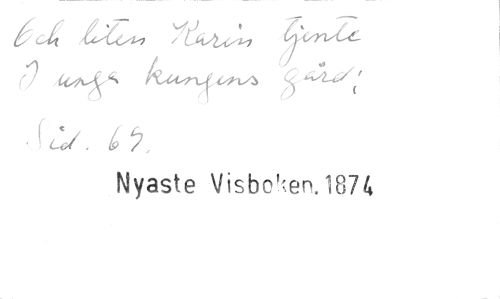 Och liten Karin tjente
I unga kungens gård;
Sid. 69.
Nyaste Visboken. 1874